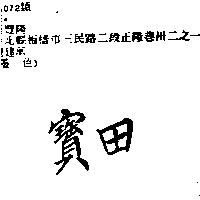 .072號
豐隆
北縣板橋市三民路二段正隆巷卅二之一
建
色)
寶田